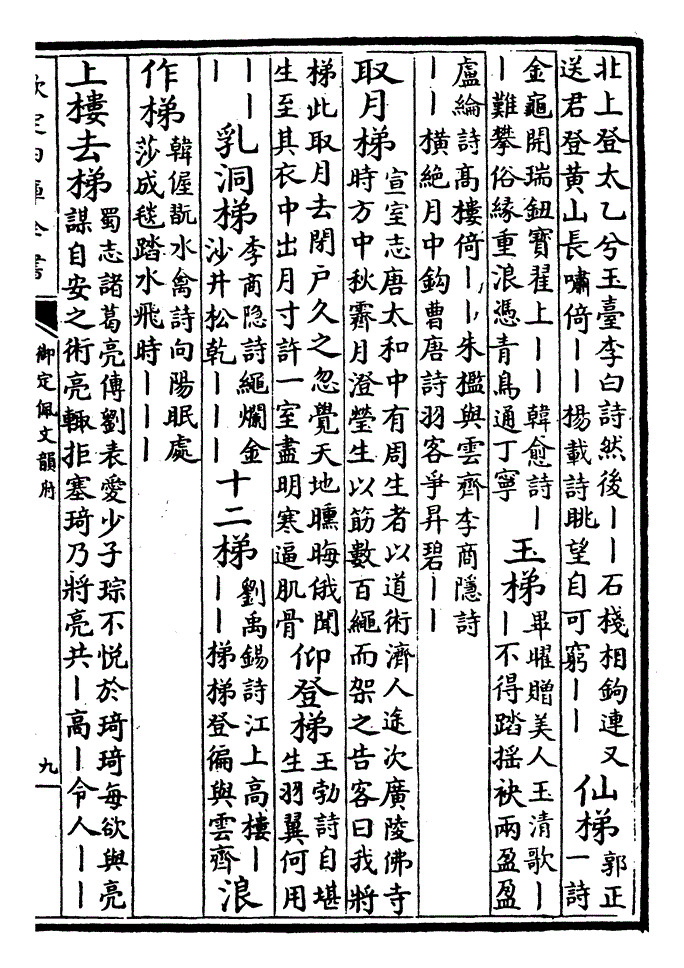 北上登太乙兮玉臺李白詩然後丨丨石棧相鉤連又
送君登黄山長嘯倚丨丨楊載詩眺望自可窮丨丨
仙梯
郭正
一詩
金龜開瑞鈕寳翟上丨丨韓愈詩丨
丨難攀俗緣重浪憑青鳥通丁寧
玉梯
畢曜贈美人玉清歌丨
丨不得踏摇袂兩盈盈
盧綸詩髙樓倚丨丨朱檻與雲齊李商隱詩
丨丨横絶月中鈎曹唐詩羽客爭昇碧丨丨
取月梯
宣室志唐太和中有周生者以道術濟人途次廣陵佛寺
時方中秋霽月澄瑩生以筋數百繩而架之告客曰我將
梯此取月去閉户久之忽覺天地曛晦俄聞
生至其衣中出月寸許一室盡明寒逼肌骨
仰登梯
王勃詩自堪
生羽翼何用
丨丨
丨
乳洞梯
李商隐詩繩爛金
沙井松乾丨丨丨
十二梯
劉禹錫詩江上高樓丨
丨丨梯梯登徧與雲齊
浪
作梯
韓偓翫水禽詩向陽眠處
莎成毯踏水飛時丨丨丨
上樓去梯
蜀志諸葛亮傳劉表愛少子琮不悦於琦琦每欲與亮
謀自安之術亮輒拒塞琦乃將亮共丨高丨令人丨丨
欽定四庫全書
御定佩文韻府
九